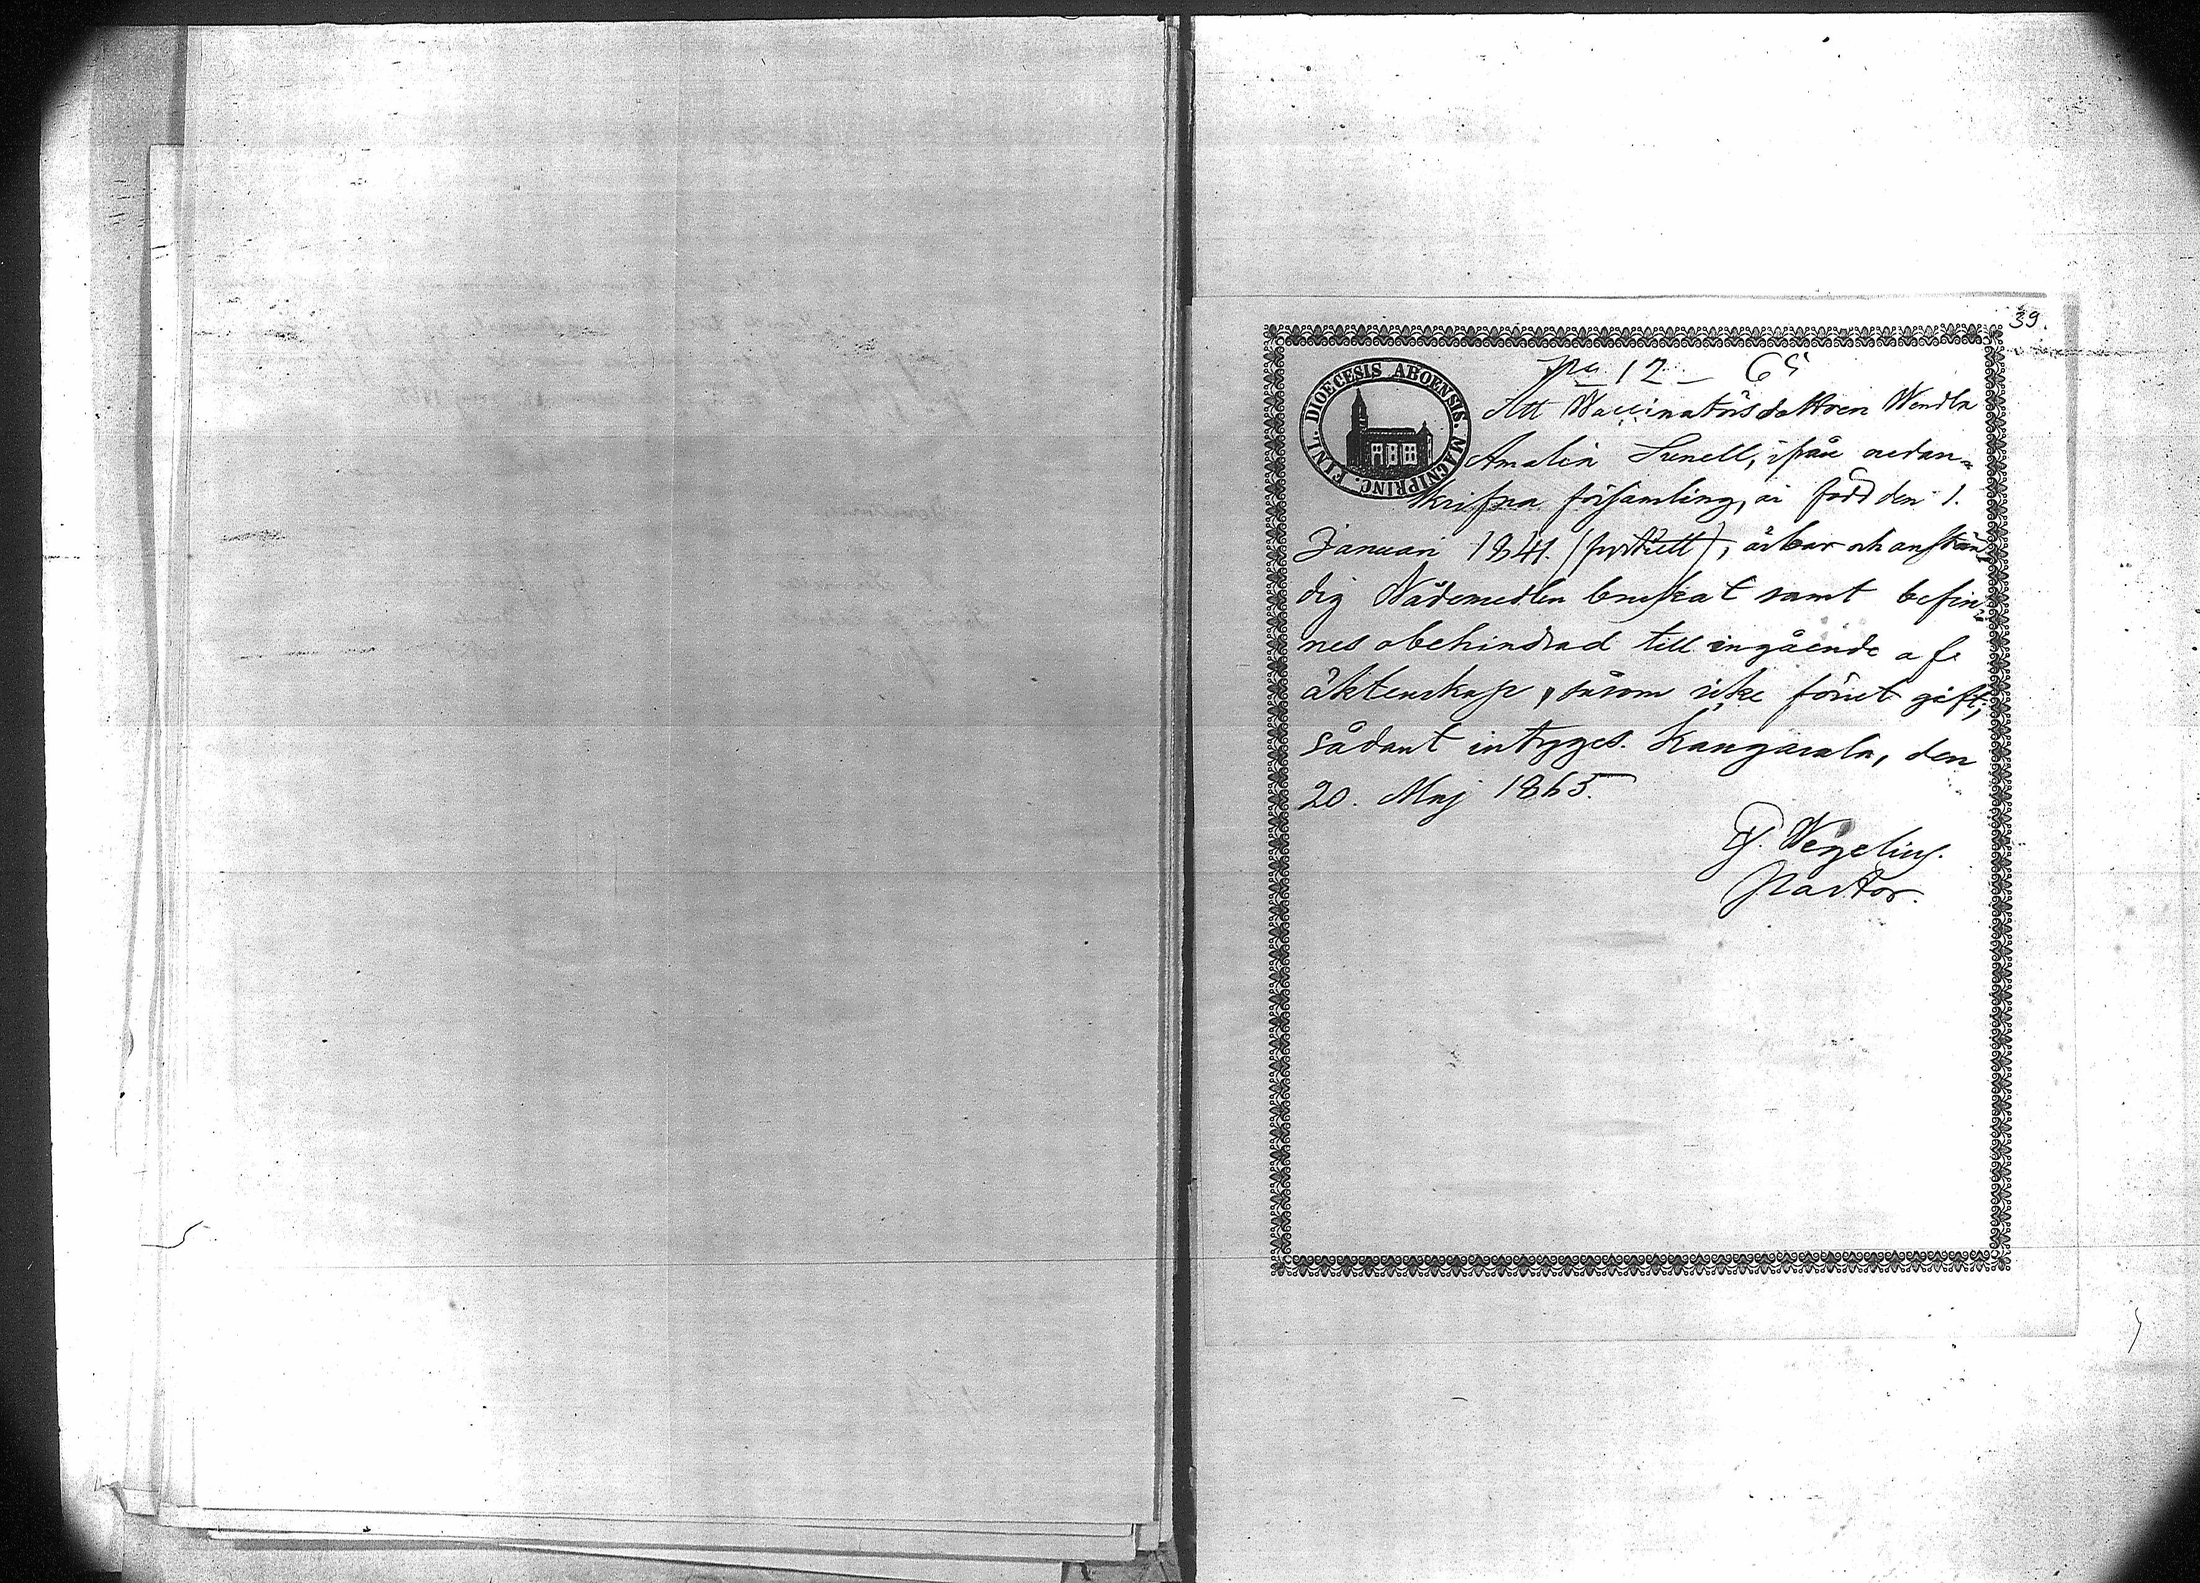 39.
12 - 65
DIOECESIS ABOENSIS. MAGNIPRINC. FINL.
Att Vaccinatörsdottren Wendla
Amalia Sunell, ifrån nedan-
skrifna församling, är född den 1.
Januari 1841. (fyratiett), ärbar och anstän-
dig Nådemedlen brukat samt befin-
nes obehindrad till ingående af
äktenskap, såsom icke förut gift;
sådant intygas. Kangasala, den
20. Maj 1865.
Wegelius.
Pastor.